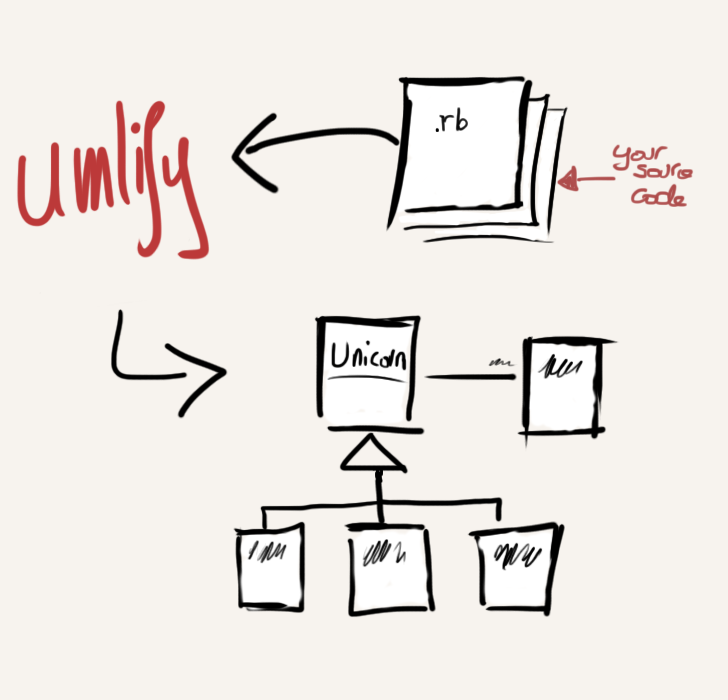 umlify
.rb
your
source
code
Unicorn